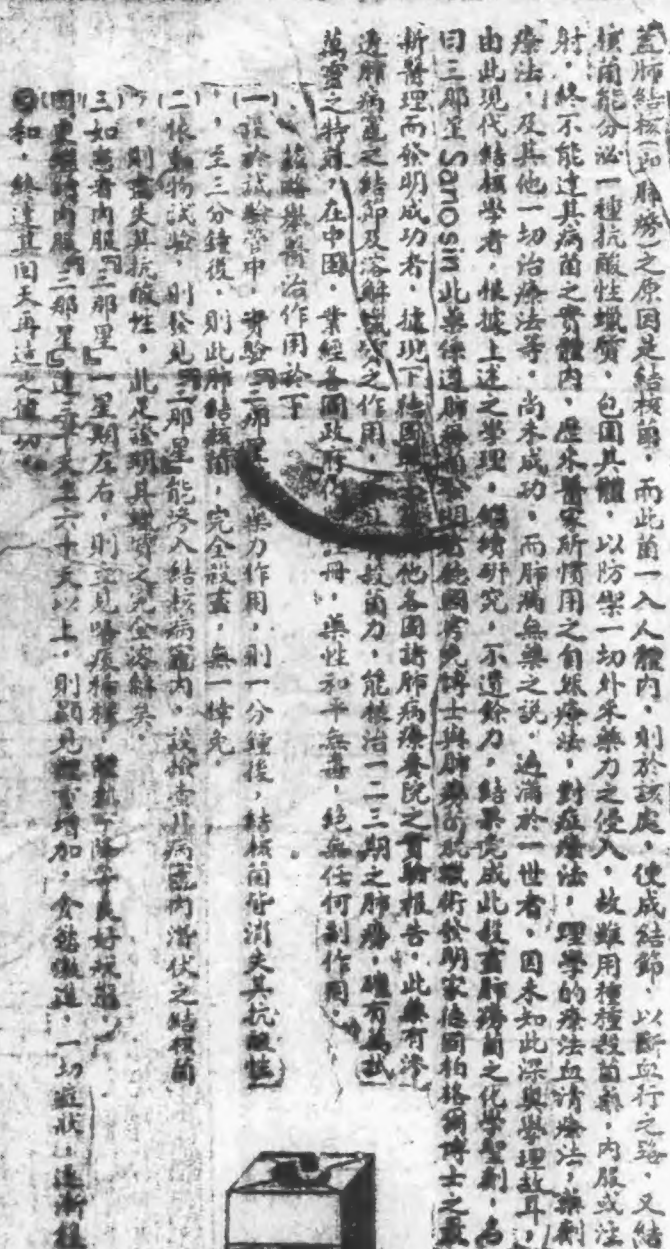 蓋肺結核(即肺癆)之原因是結核菌，而此菌一入人體內，則於該處，使成結節，以斷血行之路，又結
核菌能分泌一種抗酸性蠟質，包圍其體，以防禦一切外來藥力之侵入，故雖用種種殺菌藥，內服或注
射，終不能達其病菌之實體內，歷來醫家所慣用之自然療法，對症療法，理學的療法血清療法，藥劑
療法，及其他一切治療法等，尚未成功，而肺癆無藥之說，遍滿於一世者，因未知此深奧學理故耳，
由此現代結核學者，根據上述之學理，繼續研究，不遺餘力，結果完成此殺盡肺癆菌之化學聖劑，名
曰三那星 Sanosin 此藥係 德國 博士與肺癆 術發明家德國柏格爾博士之最
新醫理而發明成功者，據現下德國 他各國諸肺病療養院之實驗報告，此藥有滲
透肺病竈之結節及溶解蠟質之作用， 殺菌力，能根治一二三期之肺癆，確有
萬靈之特 ，在中國，業經各國政府 註冊，藥性和平無毒，絕無任何副作用，
茲略舉醫治作用於下
(一)設於試驗管中，實驗『三那星』藥力作用，則一分鐘後，結核菌皆消失其抗酸性
，至三分鐘後，則此肺結核菌，完全殺盡，無一倖免。
(二)依動物試驗，則發見『三那星』能滲入結核病竈內，設檢查其病竈內潛伏之結核菌
，則盡失其抗酸性，此足證明其蠟質之完全溶解矣。
(三)如患者內服『三那星』一星期左右，則立見咯痰稀 ， 熱 等良好 ，
內服『三那星』達三十天至六十天以上，則顯見體重增加，食慾 進，一切症狀，逐漸
和，終達其回天再造之 功。